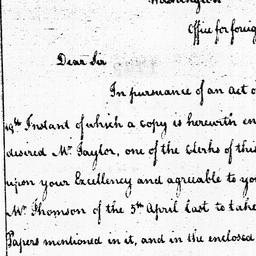 Washington
Office for foreig
Dear Sir
In pursuance of an act o
19th Instand of which a copy is herewith en
desired Mr. Taylor, one of the Clerks of this
upon your Excellency and agreeable to yo
Mr. Thomson of the 5th April last to take
Papers mentioned in it, and in the enclosed